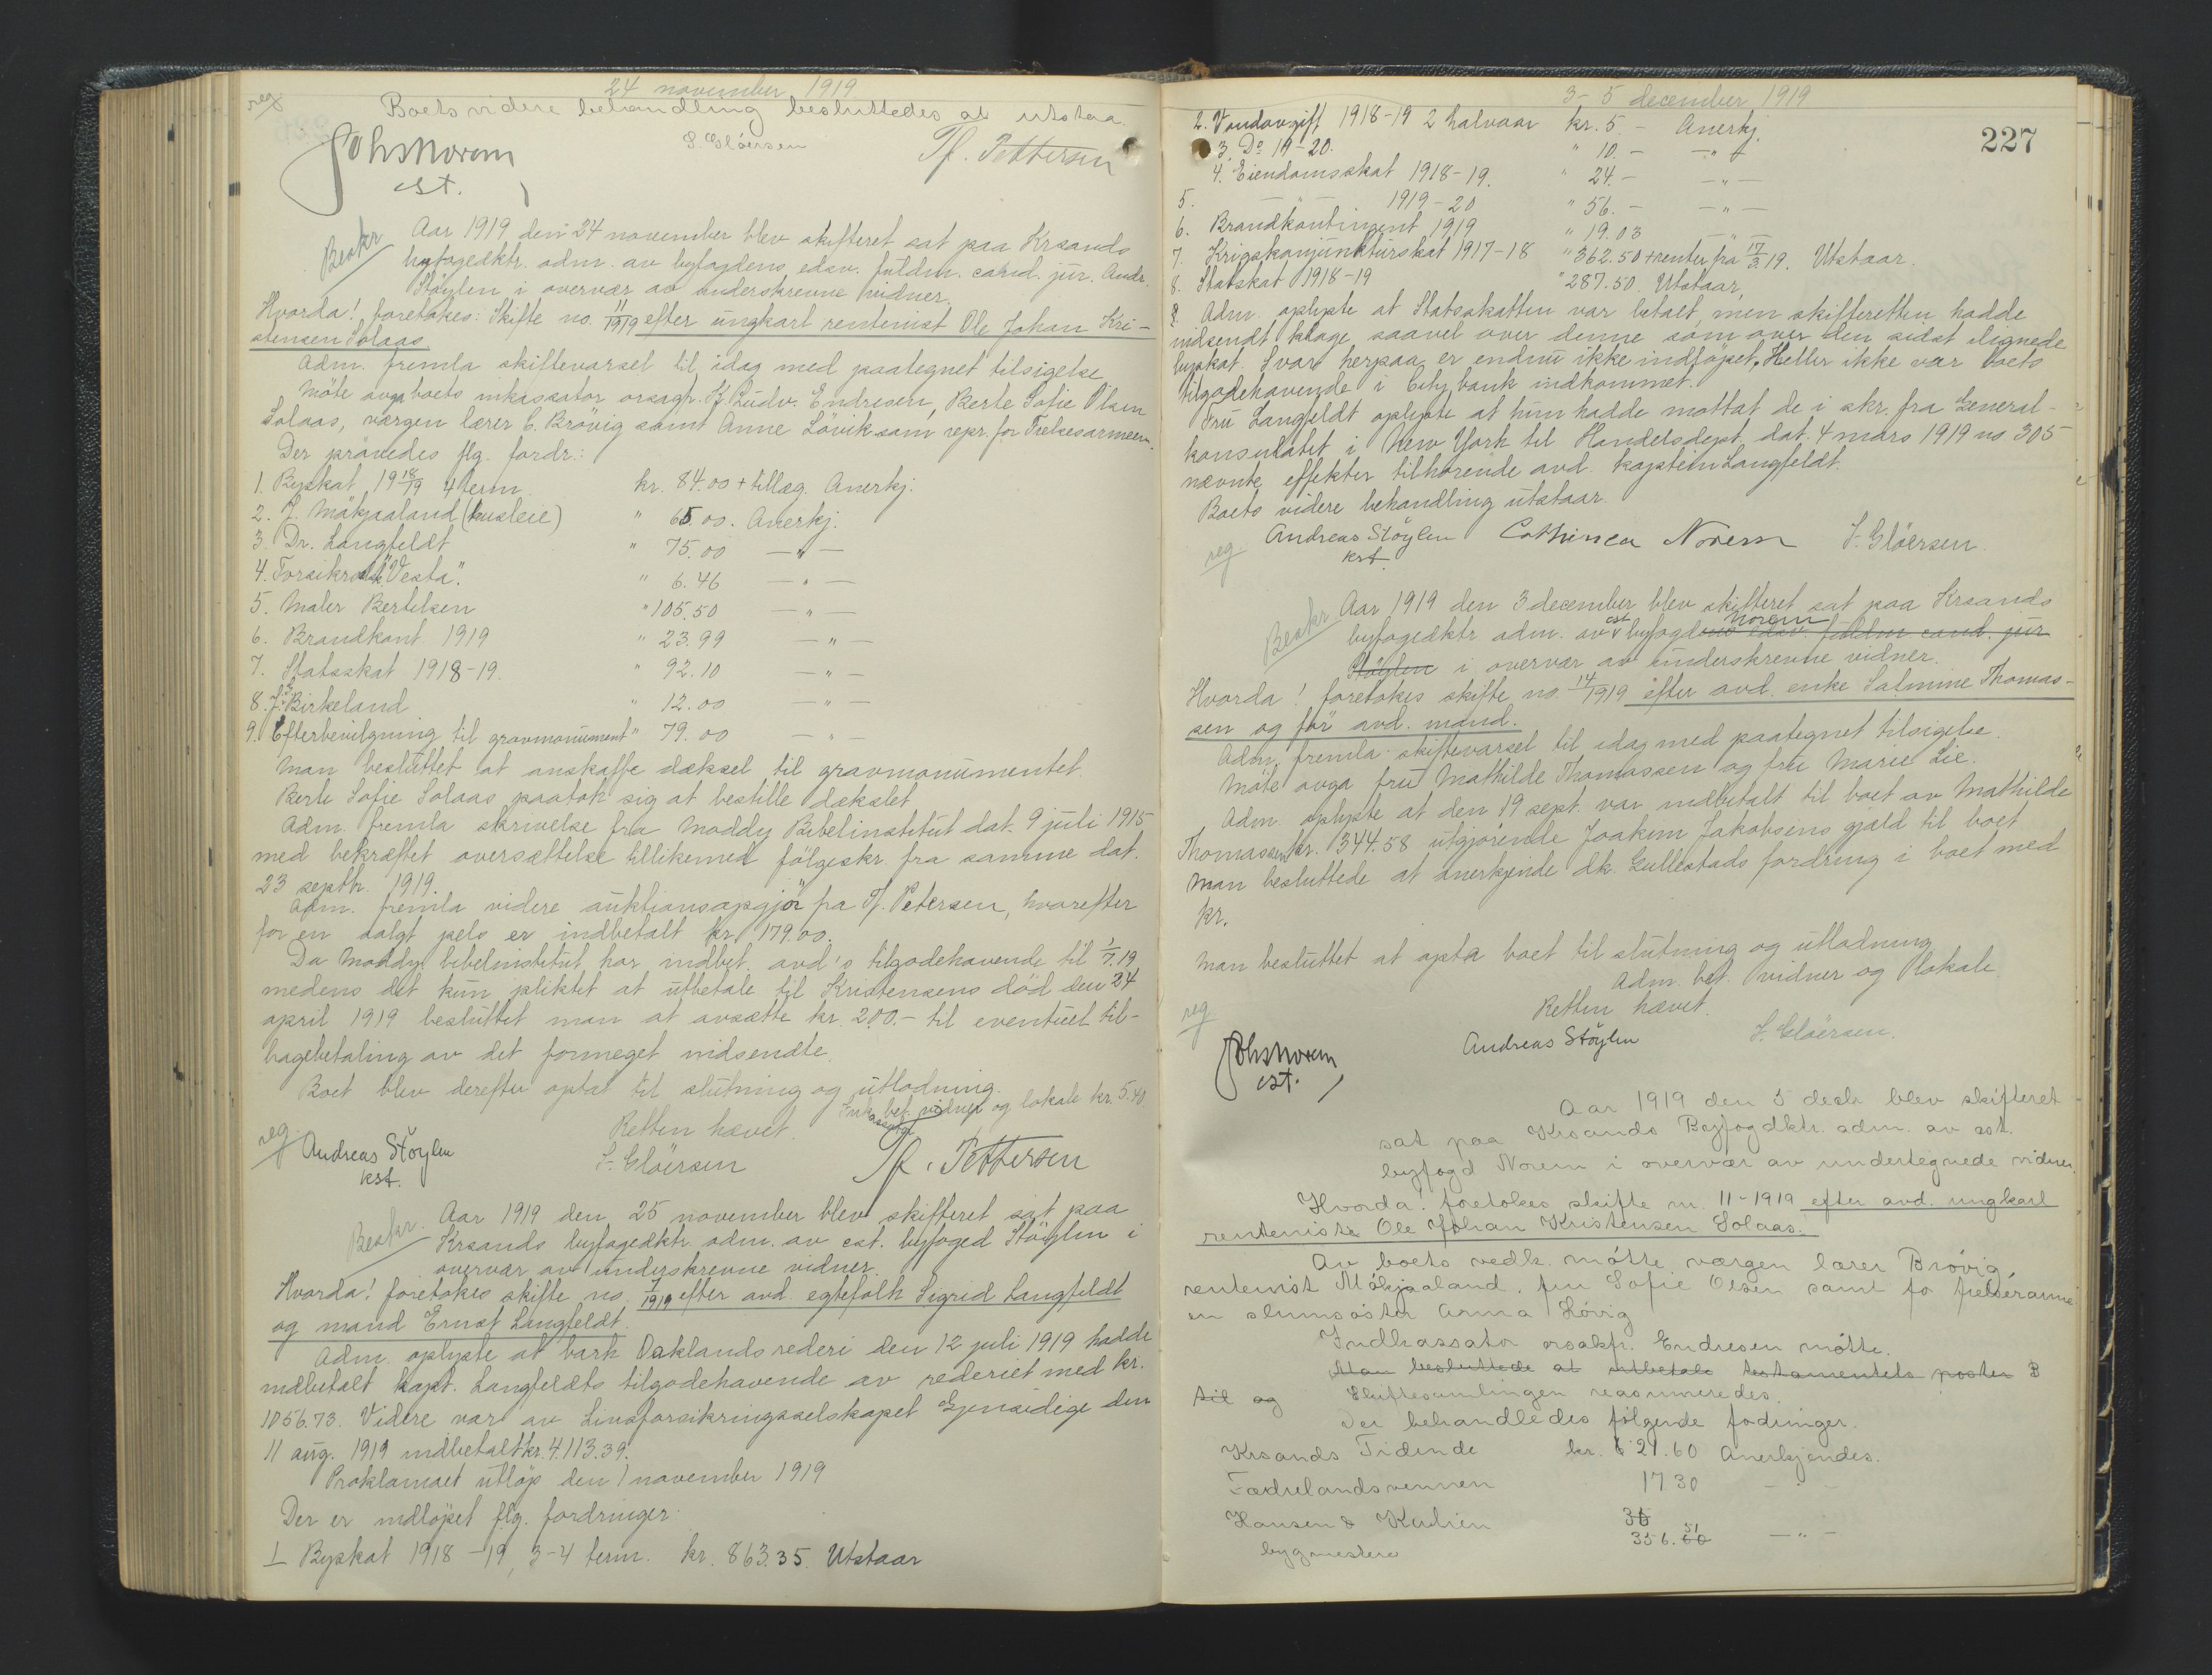 24 november 1919
reg
Boets videre behandling besluttedes at utstaa.
Johs Norem
cst.
S. Glöersen
Tf. Pettersen
Beskr
Aar 1919 den 24 november blev skifteret sat paa Krsands
byfogedktr. adm. av byfogdens edsv. fuldm. cand. jur. Andr.
Stöylen i overvær av underskrevne vidner.
Hvorda! foretokes: Skifte no. 11/1919 efter ungkarl rentenist Ole Johan Kri-
stensen Solaas.
Adm. fremla skiftevarsel til idag med paategnet tilsigelse
Möte avga boets inkassator orsagf. Kf. Ludv. Endresen, Berte Sofie Olsen
Solaas, værgen lærer C. Brövig samt Anne Lövik som repr. for Frelsesarmeen.
Der prövedes flg. fordr.:
1. Byskat 19 18/19 4 term. kr. 84.00 + tillæg. Anerkj.
2. J. Mökjaaland (husleie) " 65.00. Anerkj.
3. Dr. Langfeldt " 75.00 — " —
4. Forsikrselsk. "Vesta". " 6.46 — " —
5. Maler Bertelsen " 105.50 — " —
6. Brandkont. 1919 " 23.99 — " —
7. Statsskat 1918-19. " 92.10 — " —
8. J. Birkeland " 12.00 — " —
9. Efterbevilgning til gravmonument " 79.00 — " —
Man besluttet at anskaffe dæksel til gravmonumentet.
Berte Sofie Solaas paatok sig at bestille dækslet
Adm. fremla skrivelse fra Moddy Bibelinstitut dat. 9 juli 1915
med bekræftet oversættelse tillikemed fölgeskr. fra samme dat.
23 septbr. 1919.
Adm. fremla videre auktionsopgjör fra Tf. Petersen, hvorefter
for en solgt pels er indbetalt kr. 179.00.
Da Moddys bibelinstitut har indbet. avd's tilgodehavende til 1/7.19
medens det kun pliktet at utbetale til Kristensens död den 24
april 1919 besluttet man at avsætte kr. 200.- til eventuel til-
bagebetaling av det formeget indsendte.
Boet blev derefter optat til slutning og utlodning.
Inkassator bet. vidner og lokale kr. 5.40
Retten hævet.
reg
Andreas Stöylen
kst.
S. Glöersen
Tf. Pettersen
Beskr.
Aar 1919 den 25 november blev skifteret sat paa
Krsands byfogedktr. adm. av cst. byfoged Stöylen i
overvær av underskrevne vidner.
Hvorda! foretokes skifte no. 7/1919 efter avd. egtefolk Sigrid Langfeldt
og mand Ernst Langfeldt.
Adm. oplyste at bark Oaklands rederi den 12 juli 1919 hadde
indbetalt kapt. Langfeldts tilgodehavende av rederiet med kr.
1056.73. Videre var av Livsforsikringsselskapet Gjensidige den
11 aug. 1919 indbetalt kr. 4.113.39.
Proklamaet utlöp den 1 november 1919
Der er indlöpet flg. fordringer:
1 Byskat 1918-19, 3-4 term. kr. 863.35. Utstaar
3-5 december 1919
227
2. Vandavgift 1918-19 2 halvaar kr. 5 - Anerkj.
3. Do 19-20. " 10.- — " —
4. Eiendomsskat 1918-19. " 24.- — " —
5. — " — 1919-20 " 56.- — " —
6. Brandkontingent 1919 " 19.03 — " —
7. Krigskonjunkturskat 1917-18 " 362.50 + renter fra 17/3.19. Utstaar.
8. Statskat 1918-19 " 287.50. Utstaar,
Adm. oplyste at Statsskatten var betalt, men skifteretten hadde
indsendt klage saavel over denne som over den sidst ilignede
byskat. Svar herpaa er endnu ikke indlöpet. Heller ikke var boets
tilgodehavende i City bank indkommet.
Fru Langfeldt oplyste at hun hadde mottat de i skr. fra General-
konsulatet i New York til Handelsdept. dat. 4 mars 1919 no 305
nævnte effekter tilhörende avd. kaptein Langfeldt.
Boets videre behandling utstaar.
reg
Andreas Stöylen
kst.
Cathinca Norem
S. Glöersen.
Beskr.
Aar 1919 den 3 december blev skifteret sat paa Krsands
byfogedktr. adm. av cst byfogdens edsv. fuldm. cand. jur Norem
Stöylen i overvær av underskrevne vidner.
Hvorda! foretokes skifte no. 14/1919 efter avd. enke Salmine Thomas-
sen og för avd. mand.
Adm. fremla skiftevarsel til idag med paategnet tilsigelse.
Möte avga fru Mathilde Thomassen og fru Marie Lie.
Adm. oplyste at den 19 sept. var indbetalt til boet av Mathilde
Thomassen kr. 344.58 utgjörende Joakim Jakobsens gjæld til boet
Man besluttede at anerkjende dk. Gullestads fordring i boet med
kr.
Man besluttet at opta boet til slutning og utlodning
Adm. bet. vidner og lokale.
Retten hævet.
reg
Johs Norem
cst.
Andreas Stöylen
S. Glöersen.
Aar 1919 den 5 decbr blev skifteret
sat paa Krsands Byfogdktr. adm. av cst.
byfogd Norem i overvær av undertegnede vidner.
Hvorda! foretokes skifte nr. 11-1919 efter avd. ungkarl
rentenist Ole Johan Kristensen Solaas.
Av boets vedk. mötte værgen lærer Brövig,
rentenist Mökjaaland, fru Sofie Olsen samt for frelserarme
en slumsöster Anna Lövig
Indkassator orsakfr. Endresen mötte.
Man besluttede at utbetale testamentets poster B
til og Skiftesamlingen reasumeredes
Der behandledes fölgende fodringer.
Krsands Tidende kr. 21.60 Anerkjendes.
Fædrelandsvennen 17 30 — " —
Hansen & 36
356.60 51 — " —
bygmestere